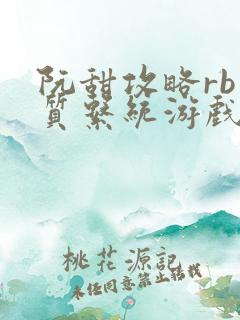 阮甜攻略rb
质系统游戏
桃花源記
未经同意禁止转载